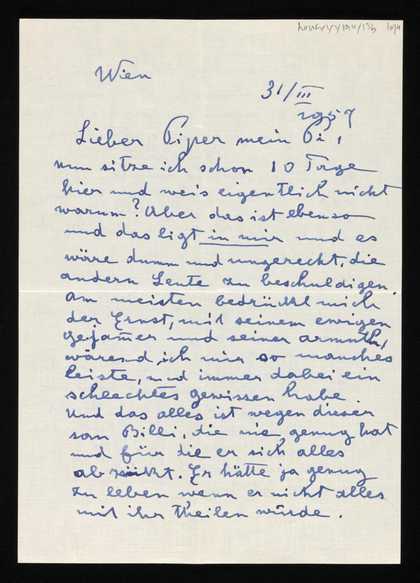 Wien
31/III
1957
Lieber Piper mein Pi,
nun sitze ich schon 10 Tage
hier und weis eigentlich nicht
warum? Aber das ist ebenso
und das ligt in mir und es
wäre dumm und ungerecht, die
andern Leute zu beschuldigen.
Am meisten bedrückt mich
der Ernst, mit seinem ewigen
gejamer und seiner armuth,
wärend ich mir so manches
leiste, und immer dabei ein
schlechtes gewissen habe.
Und das alles ist wegen dieser
Billi, die nie genug hat
und für die er sich alles
Er hätte ja genug
zu leben wenn er nicht alles
mit ihr theilen würde.